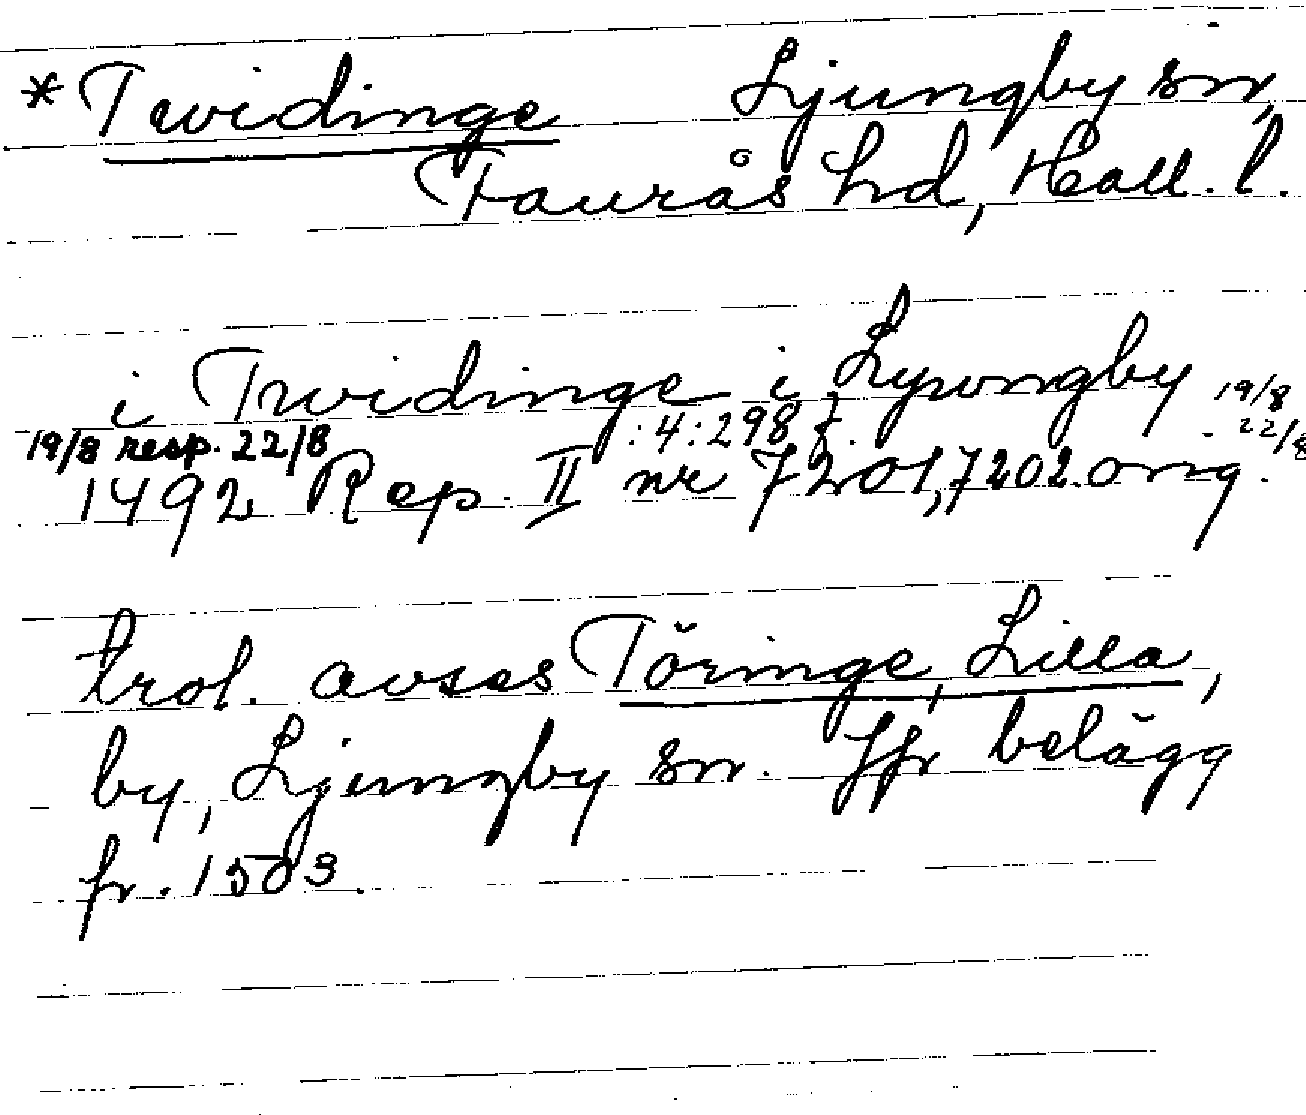 *Twidinge Ljungby sn,
Faurås hd, Hall. l.
i Twidinge i Lywngby 19/8
19/8 resp. 22/8 :4:298 f. 22/8
1492 Rep. II nr 7201, 7202 orig.
trol. avses Töringe, Lilla,
by, Ljungby sn. Jfr belägg
fr. 1503.